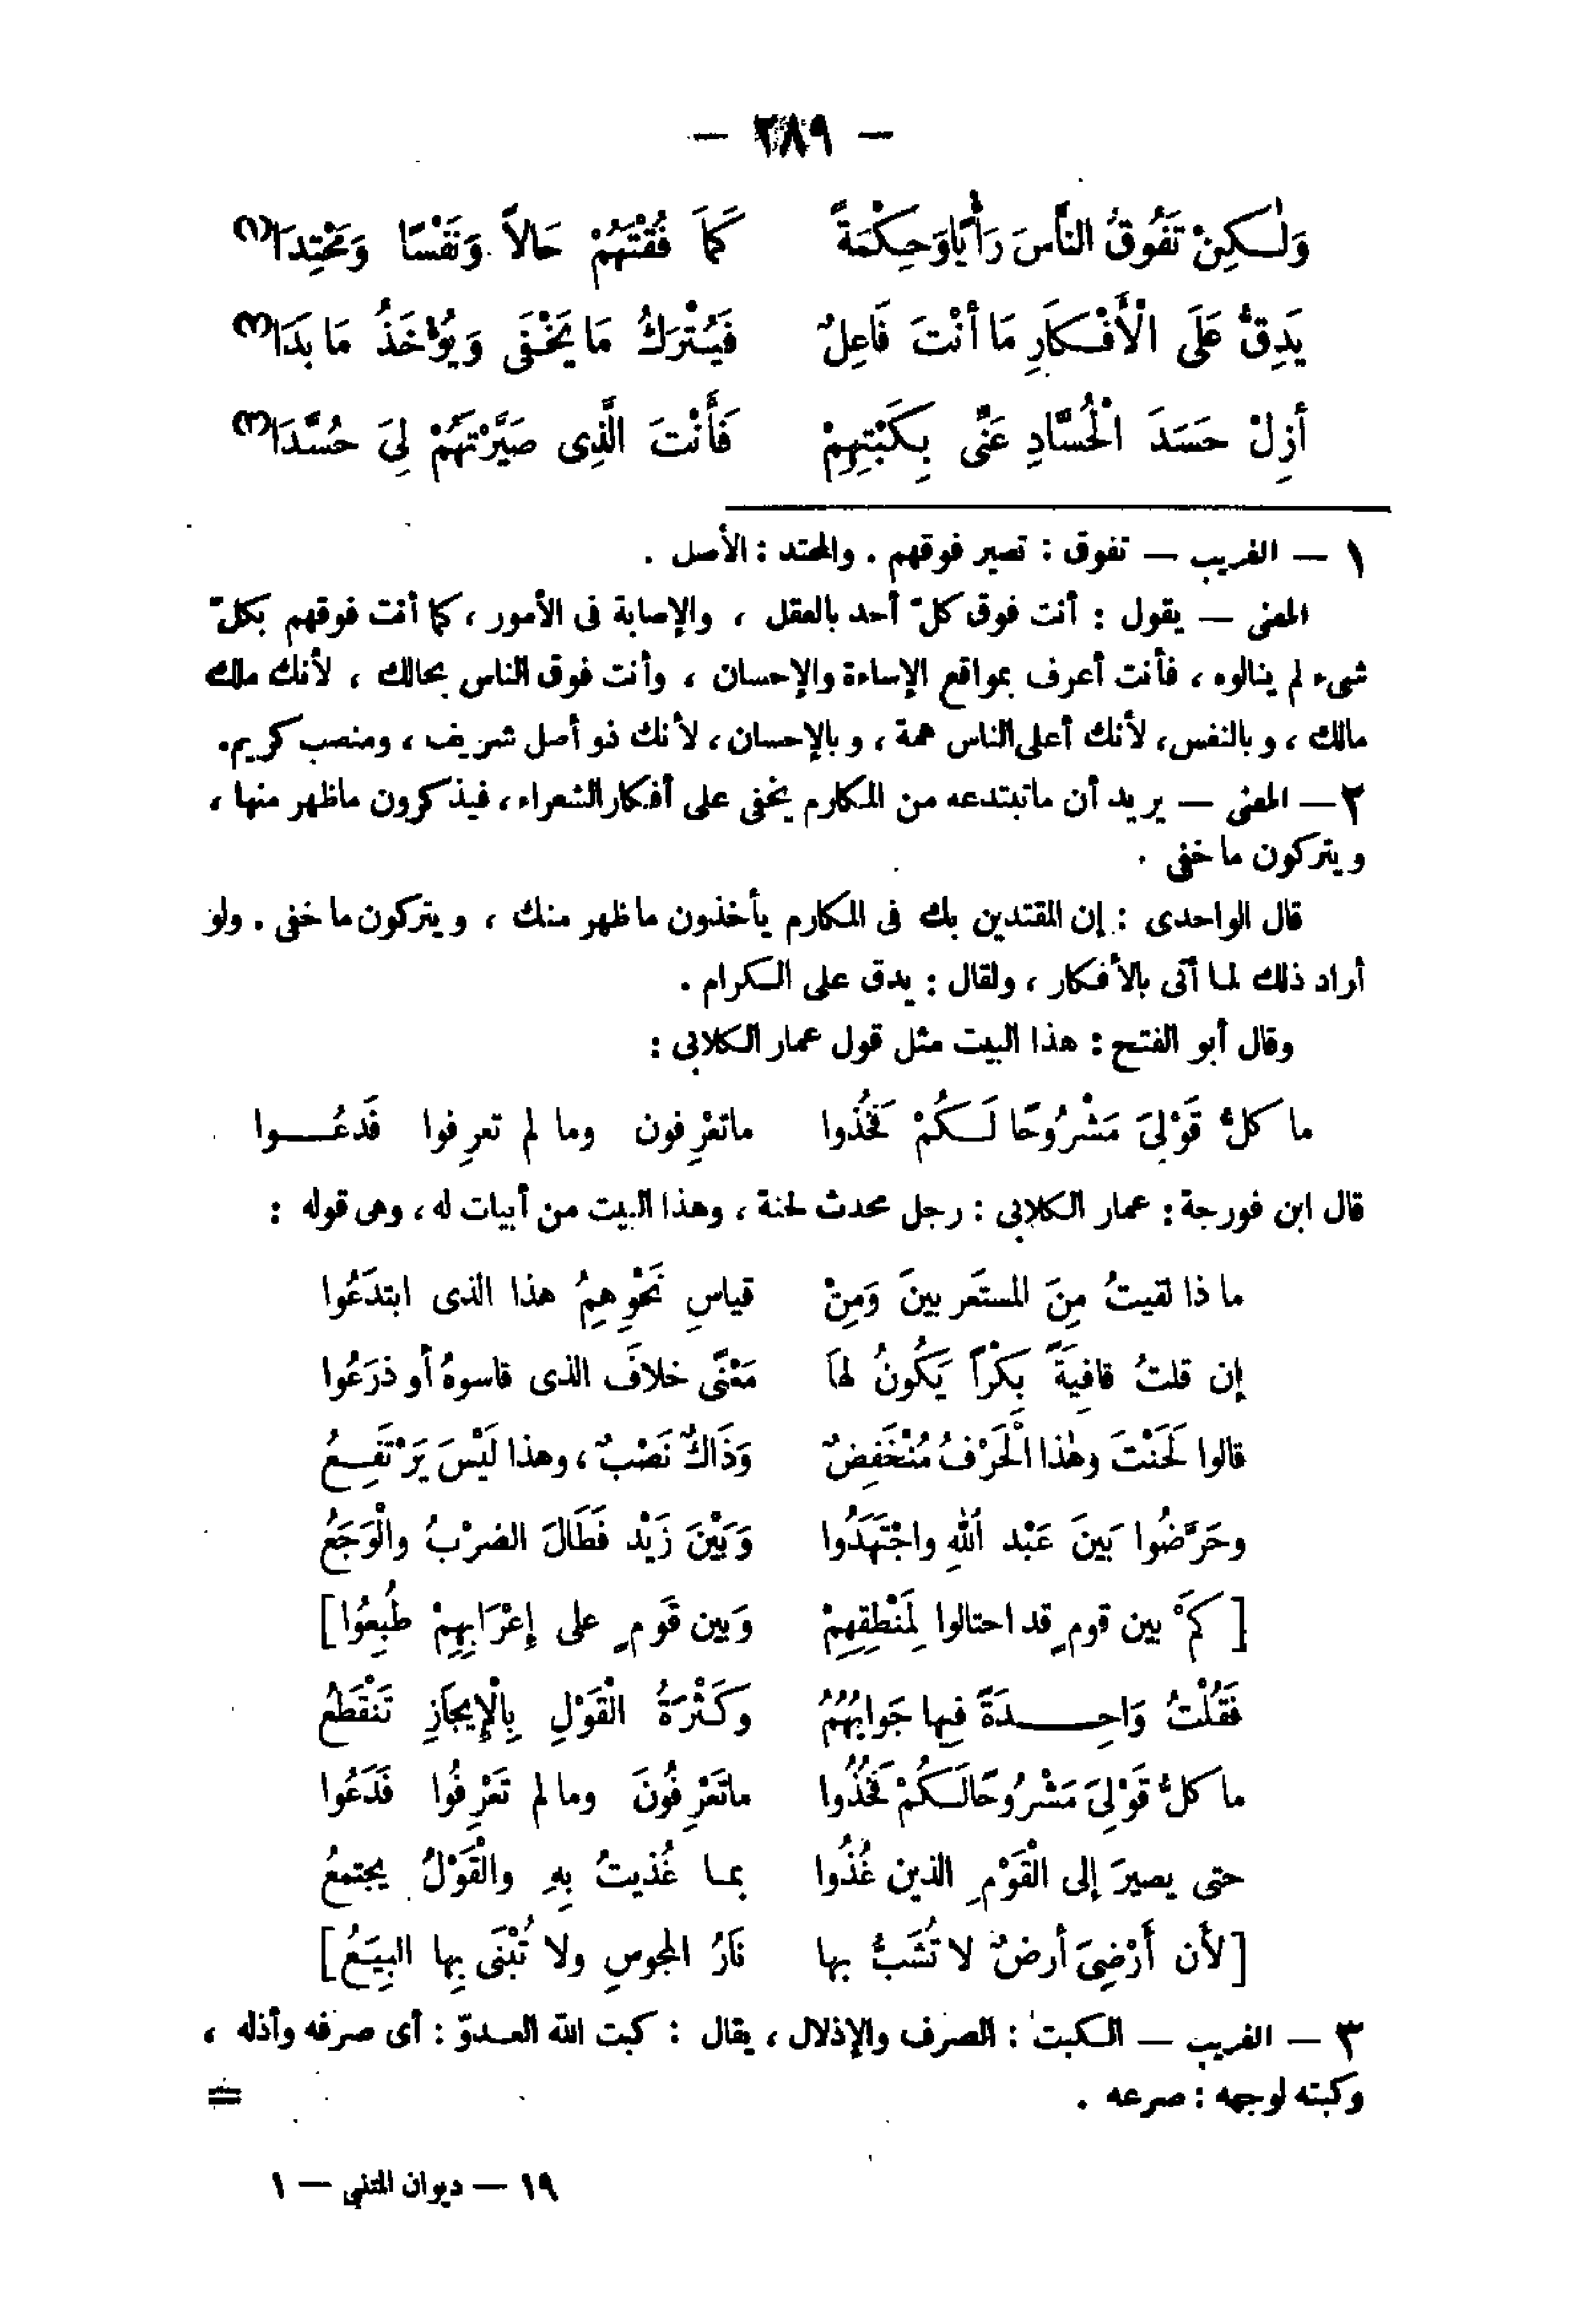 — ٢٨٩ —
وَلٰكِنْ تَفُوقُ النَّاسَ رَأْيًا وَحِكْمَةً كَمَا فُقْتَهُمْ حَالاً وَنَفْسًا وَمَحْتِدَا(١)
يَدِقُّ عَلَى الْأَفْكَارِ مَا أنْتَ فَاعِلٌ فَيُتْرَكُ مَا يَخْفَى وَيُؤْخَذُ مَا بَدَا(٢)
أزِلْ حَسَدَ الْحُسَّادِ عَنِّى بِكَبْتِهِمْ فَأَنْتَ الَّذِى صَيَّرْتَهُمْ لِىَ حُسَّدَا(٣)
١ — الغريب — تفوق : تصير فوقهم . والمحتد : الأصل .
المعنى — يقول : أنت فوق كلّ أحد بالعقل ، والإصابة فى الأمور ، كما أنت فوقهم بكلّ
شىء لم ينالوه ، فأنت أعرف بمواقع الإساءة والإحسان ، وأنت فوق الناس بحالك ، لأنك ملك
مالك ، وبالنفس، لأنك أعلى الناس همة ، وبالإحسان، لأنك ذو أصل شريف ، ومنصب كريم.
٢ — المعنى — يريد أن ماتبتدعه من المكارم يخفى على أفكار الشعراء، فيذكرون ماظهر منها ،
ويتركون ما خفى .
قال الواحدى : إن المقتدين بك فى المكارم يأخذون ما ظهر منك ، ويتركون ما خفى . ولو
أراد ذلك لما أتى بالأفكار ، ولقال : يدق على الكرام .
وقال أبو الفتح : هذا البيت مثل قول عمار الكلابى :
ما كلُّ قَوْلِىَ مَشْرُوحًا لَكُمْ فَخُذُوا ماتعْرِفون وما لم تعرِفوا فَدعُوا
قال ابن فورجة : عمار الكلابى : رجل محدث لحنة ، وهذا البيت من أبيات له ، وهى قوله :
ما ذا لقيتُ مِنَ المستَعربينَ وَمِنْ قياسِ نَحْوِهِمُ هذا الذى ابتدَعُوا
إن قلتُ قافيَةً بِكْراً يَكُونُ لهَا مَعْنًى خلافَ الذى قاسوهُ أو ذرَعُوا
قالوا لَحَنْتَ وهٰذا الْحَرْفُ مُنْخَفِضٌ وَذَاكَ نَصْبٌ ، وهذا لَيْسَ يَرْتَفِعُ
وحَرَّضُوا بَينَ عَبْد اللهِ واجْتَهَدُوا وَبَيْنَ زَيْد فَطَالَ الضرْبُ والْوَجَعُ
[ كَمْ بين قومٍ قد احتالوا لِمَنْطِقِهِمْ وَبين قَومٍ على إعْرَابِهِمْ طُبِعُوا ]
فَقُلْتُ وَاحِدَةً فيها جَوابُهُمُ وكَثْرَةُ الْقَوْلِ بِالْإِيجَازِ تَنْقَطعُ
ما كلُّ قَوْلِىَ مَشْرُوحًا لَكُمْ فَخُذُوا ماتَعْرِفُونَ وما لم تَعْرِفُوا فَدَعُوا
حتى يصيرَ إلى الْقَوْمِ الذين غُذُوا بما غُذيتُ بِهِ والْقَوْلُ يجتمعُ
[ لأن أَرْضِىَ أرضٌ لا تُشَبُّ بها نَارُ المجوسِ ولا تُبْنَى بِها البِيَعُ ]
٣ — الغريب — الكبت : الصرف والإذلال ، يقال : كبت اللّه العدوّ : أى صرفه وأذله ،
وكبته لوجهه : صرعه . =
١٩ — ديوان المتنبى — ١